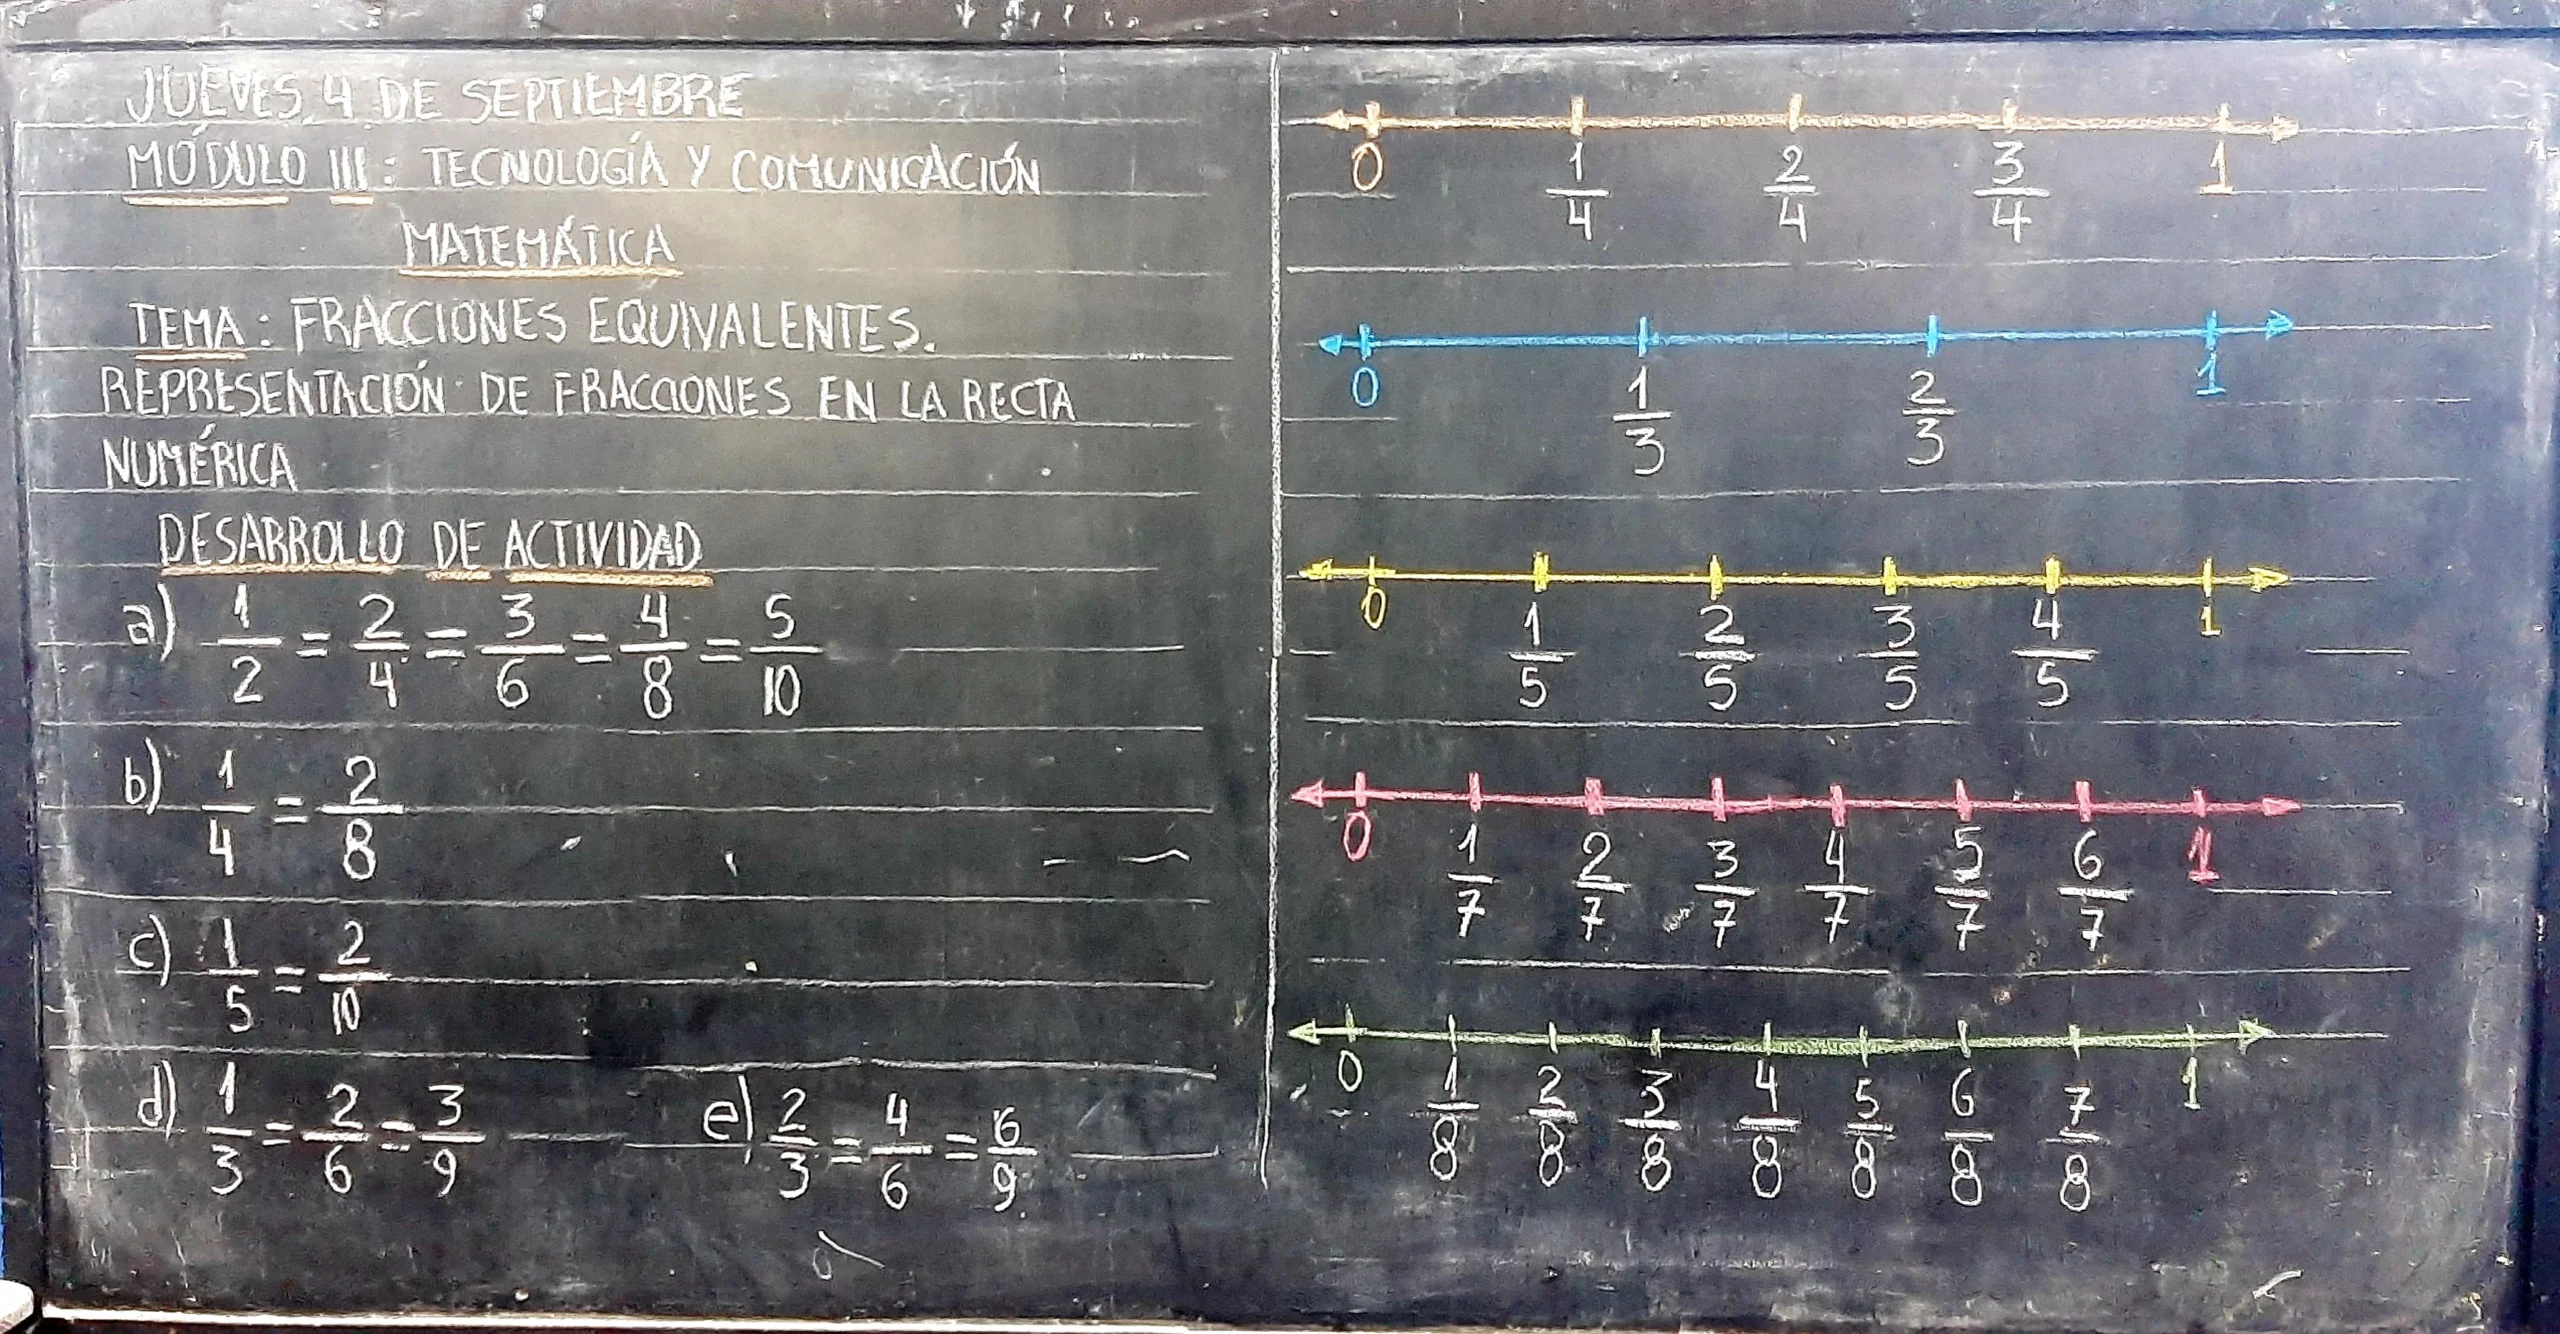 JUEVES 4 DE SEPTIEMBRE
MÓDULO III: TECNOLOGÍA Y COMUNICACIÓN
MATEMÁTICA
TEMA: FRACCIONES EQUIVALENTES.
REPRESENTACIÓN DE FRACCIONES EN LA RECTA
NUMÉRICA
DESARROLLO DE ACTIVIDAD
a) 1/2 = 2/4 = 3/6 = 4/8 = 5/10
b) 1/4 = 2/8
c) 1/5 = 2/10
d) 1/3 = 2/6 = 3/9 e) 2/3 = 4/6 = 6/9
0 1/4 2/4 3/4 1
0 1/3 2/3 1
0 1/5 2/5 3/5 4/5 1
0 1/7 2/7 3/7 4/7 5/7 6/7 1
0 1/8 2/8 3/8 4/8 5/8 6/8 7/8 1